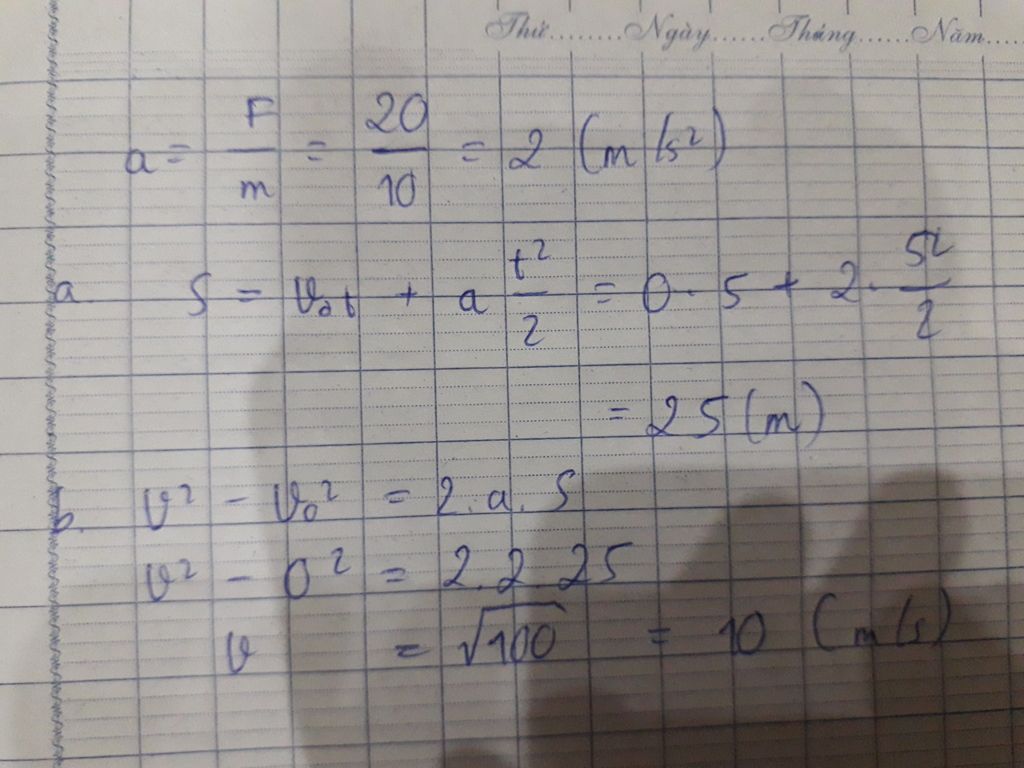 Thứ........Ngày......Tháng......Năm....
a = F/m = 20/10 = 2 (m/s²)
a S = v₀t + a t²/2 = 0 . 5 + 2 . 5²/2
= 25 (m)
b. v² - v₀² = 2.a.S
v² - 0² = 2.2 25
v = √100 = 10 (m/s)